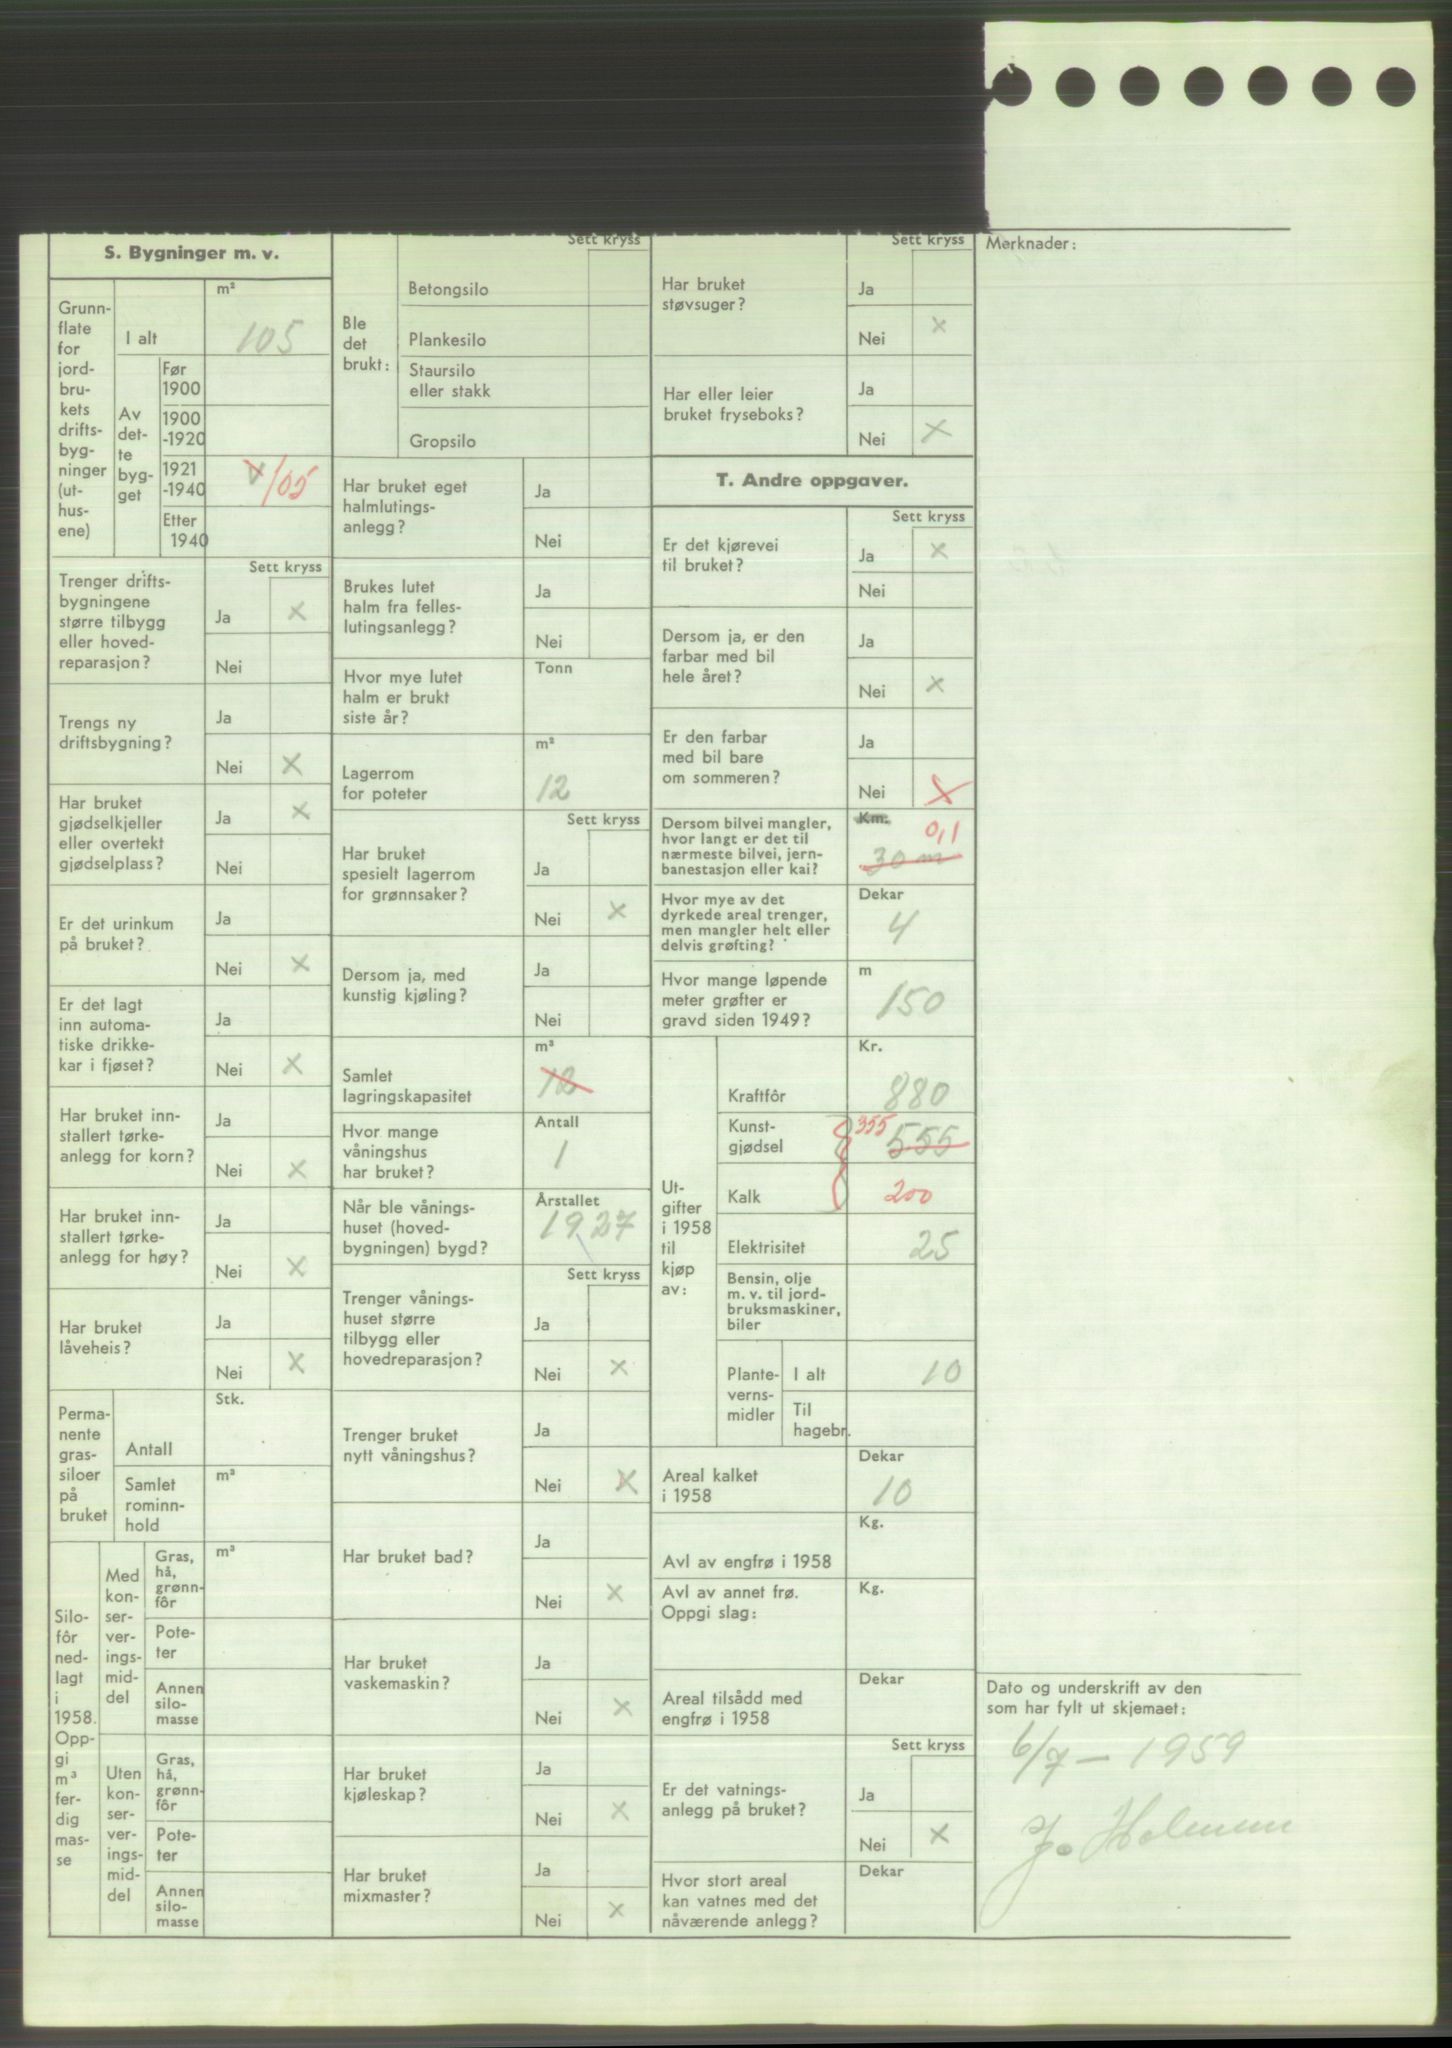 S. Bygninger m. v.
Grunn-
flate
for
jord-
bru-
kets
drifts-
byg-
ninger
(ut-
hus-
ene)
I alt
m²
105
Av
det-
te
byg-
get
Før
1900
1900
-1920
1921
-1940
105
Etter
1940
Sett kryss
Trenger drifts-
bygningene
større tilbygg
eller hoved-
reparasjon?
Ja x
Nei
Trengs ny
driftsbygning?
Ja
Nei x
Har bruket
gjødselkjeller
eller overtekt
gjødselplass?
Ja x
Nei
Er det urinkum
på bruket?
Ja
Nei x
Er det lagt
inn automa-
tiske drikke-
kar i fjøset?
Ja
Nei x
Har bruket inn-
stallert tørke-
anlegg for korn?
Ja
Nei x
Har bruket inn-
stallert tørke-
anlegg for høy?
Ja
Nei x
Har bruket
låveheis?
Ja
Nei x
Perma-
nente
gras-
siloer
på
bruket
Antall
Stk.
Samlet
rominn-
hold
m³
Silo-
fôr
ned-
lagt
i
1958.
Opp-
gi
m³
fer-
dig
mas-
se
Med
kon-
ser-
ver-
ings-
mid-
del
Gras,
hå,
grønn-
fôr
m³
Pote-
ter
Annen
silo-
masse
Uten
kon-
ser-
ver-
ings-
mid-
del
Gras,
hå,
grønn-
fôr
Pote-
ter
Annen
silo-
masse
Sett kryss
Ble
det
brukt:
Betongsilo
Plankesilo
Staursilo
eller stakk
Gropsilo
Har bruket eget
halmlutings-
anlegg?
Ja
Nei
Brukes lutet
halm fra felles-
lutingsanlegg?
Ja
Nei
Hvor mye lutet
halm er brukt
siste år?
Tonn
Lagerrom
for poteter
m²
12
Sett kryss
Har bruket
spesielt lagerrom
for grønnsaker?
Ja
Nei x
Dersom ja, med
kunstig kjøling?
Ja
Nei
Samlet
lagringskapasitet
m³
12
Hvor mange
våningshus
har bruket?
Antall
1
Når ble vånings-
huset (hoved-
bygningen) bygd?
Årstallet
1927
Sett kryss
Trenger vånings-
huset større
tilbygg eller
hovedreparasjon?
Ja
Nei x
Trenger bruket
nytt våningshus?
Ja
Nei x
Har bruket bad?
Ja
Nei x
Har bruket
vaskemaskin?
Ja
Nei x
Har bruket
kjøleskap?
Ja
Nei x
Har bruket
mixmaster?
Ja
Nei x
Sett kryss
Har bruket
støvsuger?
Ja
Nei x
Har eller leier
bruket fryseboks?
Ja
Nei x
T. Andre oppgaver.
Sett kryss
Er det kjørevei
til bruket?
Ja x
Nei
Dersom ja, er den
farbar med bil
hele året?
Ja
Nei x
Er den farbar
med bil bare
om sommeren?
Ja
Nei x
Dersom bilvei mangler,
hvor langt er det til
nærmeste bilvei, jern-
banestasjon eller kai?
Km.
0,1
30 m
Hvor mye av det
dyrkede areal trenger,
men mangler helt eller
delvis grøfting?
Dekar
4
Hvor mange løpende
meter grøfter er
gravd siden 1949?
m
150
Ut-
gifter
i 1958
til
kjøp
av:
Kr.
Kraftfôr
880
Kunst-
gjødsel
355
555
Kalk
200
Elektrisitet
25
Bensin, olje
m. v. til jord-
bruksmaskiner,
biler
Plante-
verns-
midler
I alt
10
Til
hagebr.
Areal kalket
i 1958
Dekar
10
Avl av engfrø i 1958
Kg.
Avl av annet frø.
Oppgi slag:
Kg.
Areal tilsådd med
engfrø i 1958
Dekar
Sett kryss
Er det vatnings-
anlegg på bruket?
Ja
Nei x
Hvor stort areal
kan vatnes med det
nåværende anlegg?
Dekar
Merknader:
Dato og underskrift av den
som har fylt ut skjemaet:
6/7 - 1959